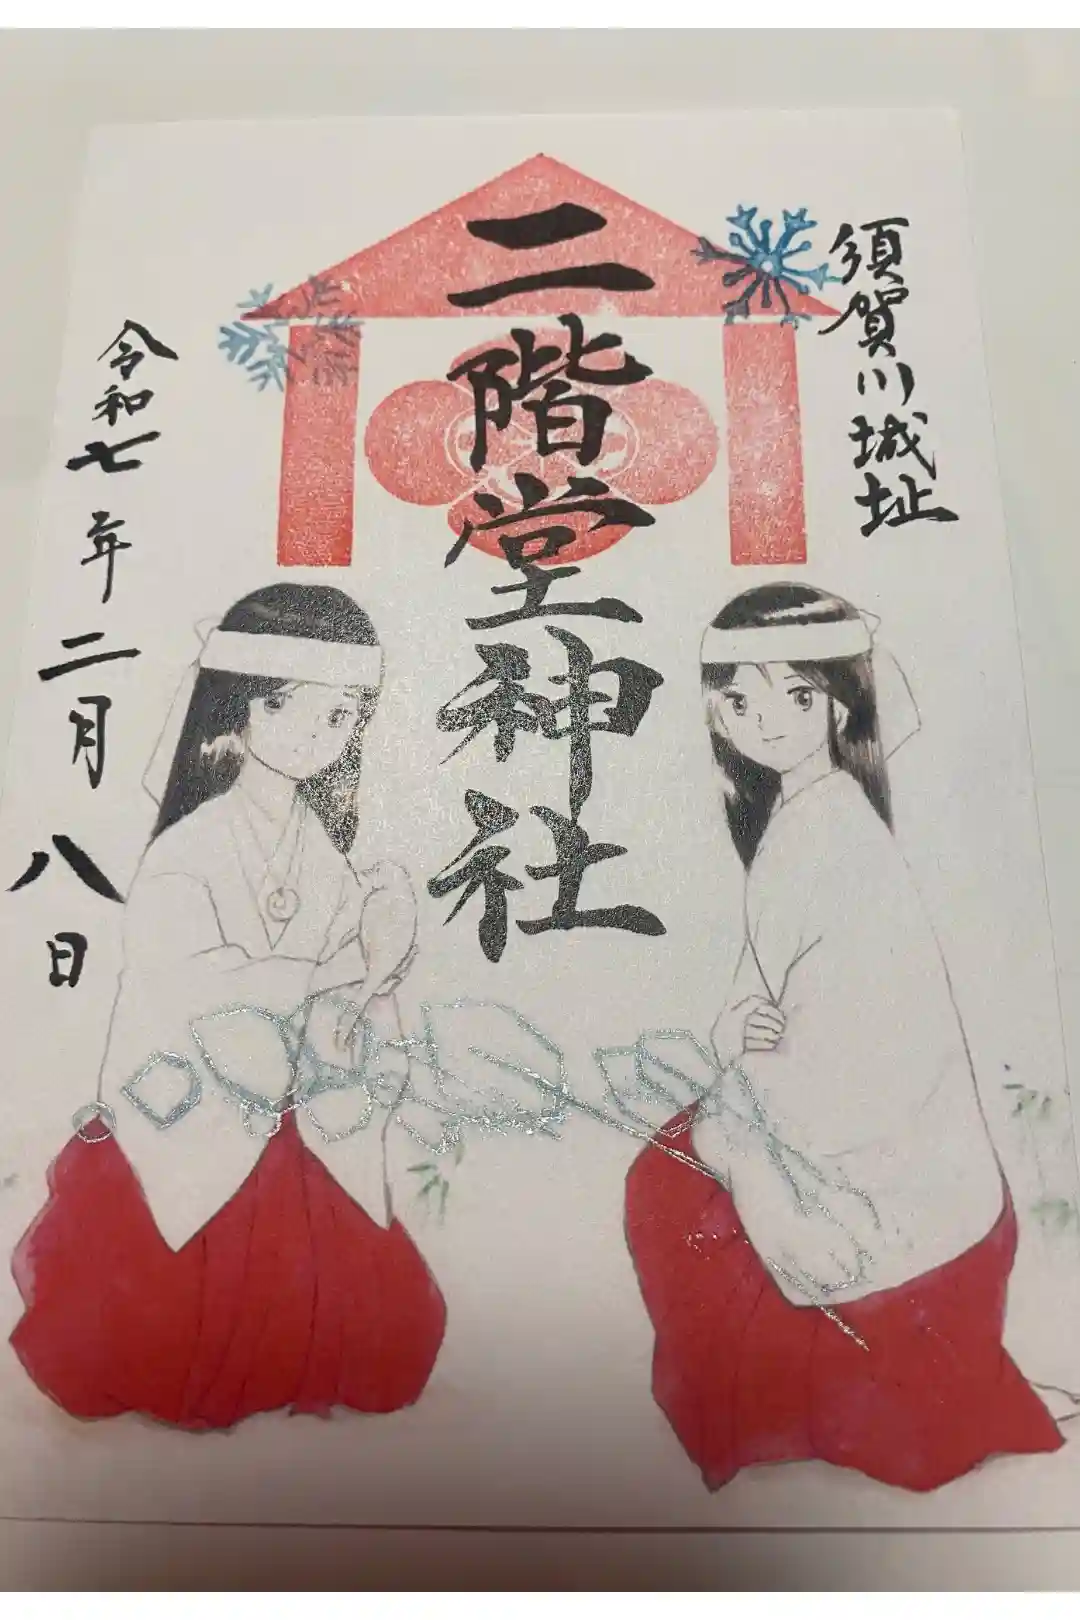 須賀川城址
二階堂神社
令和七年二月八日